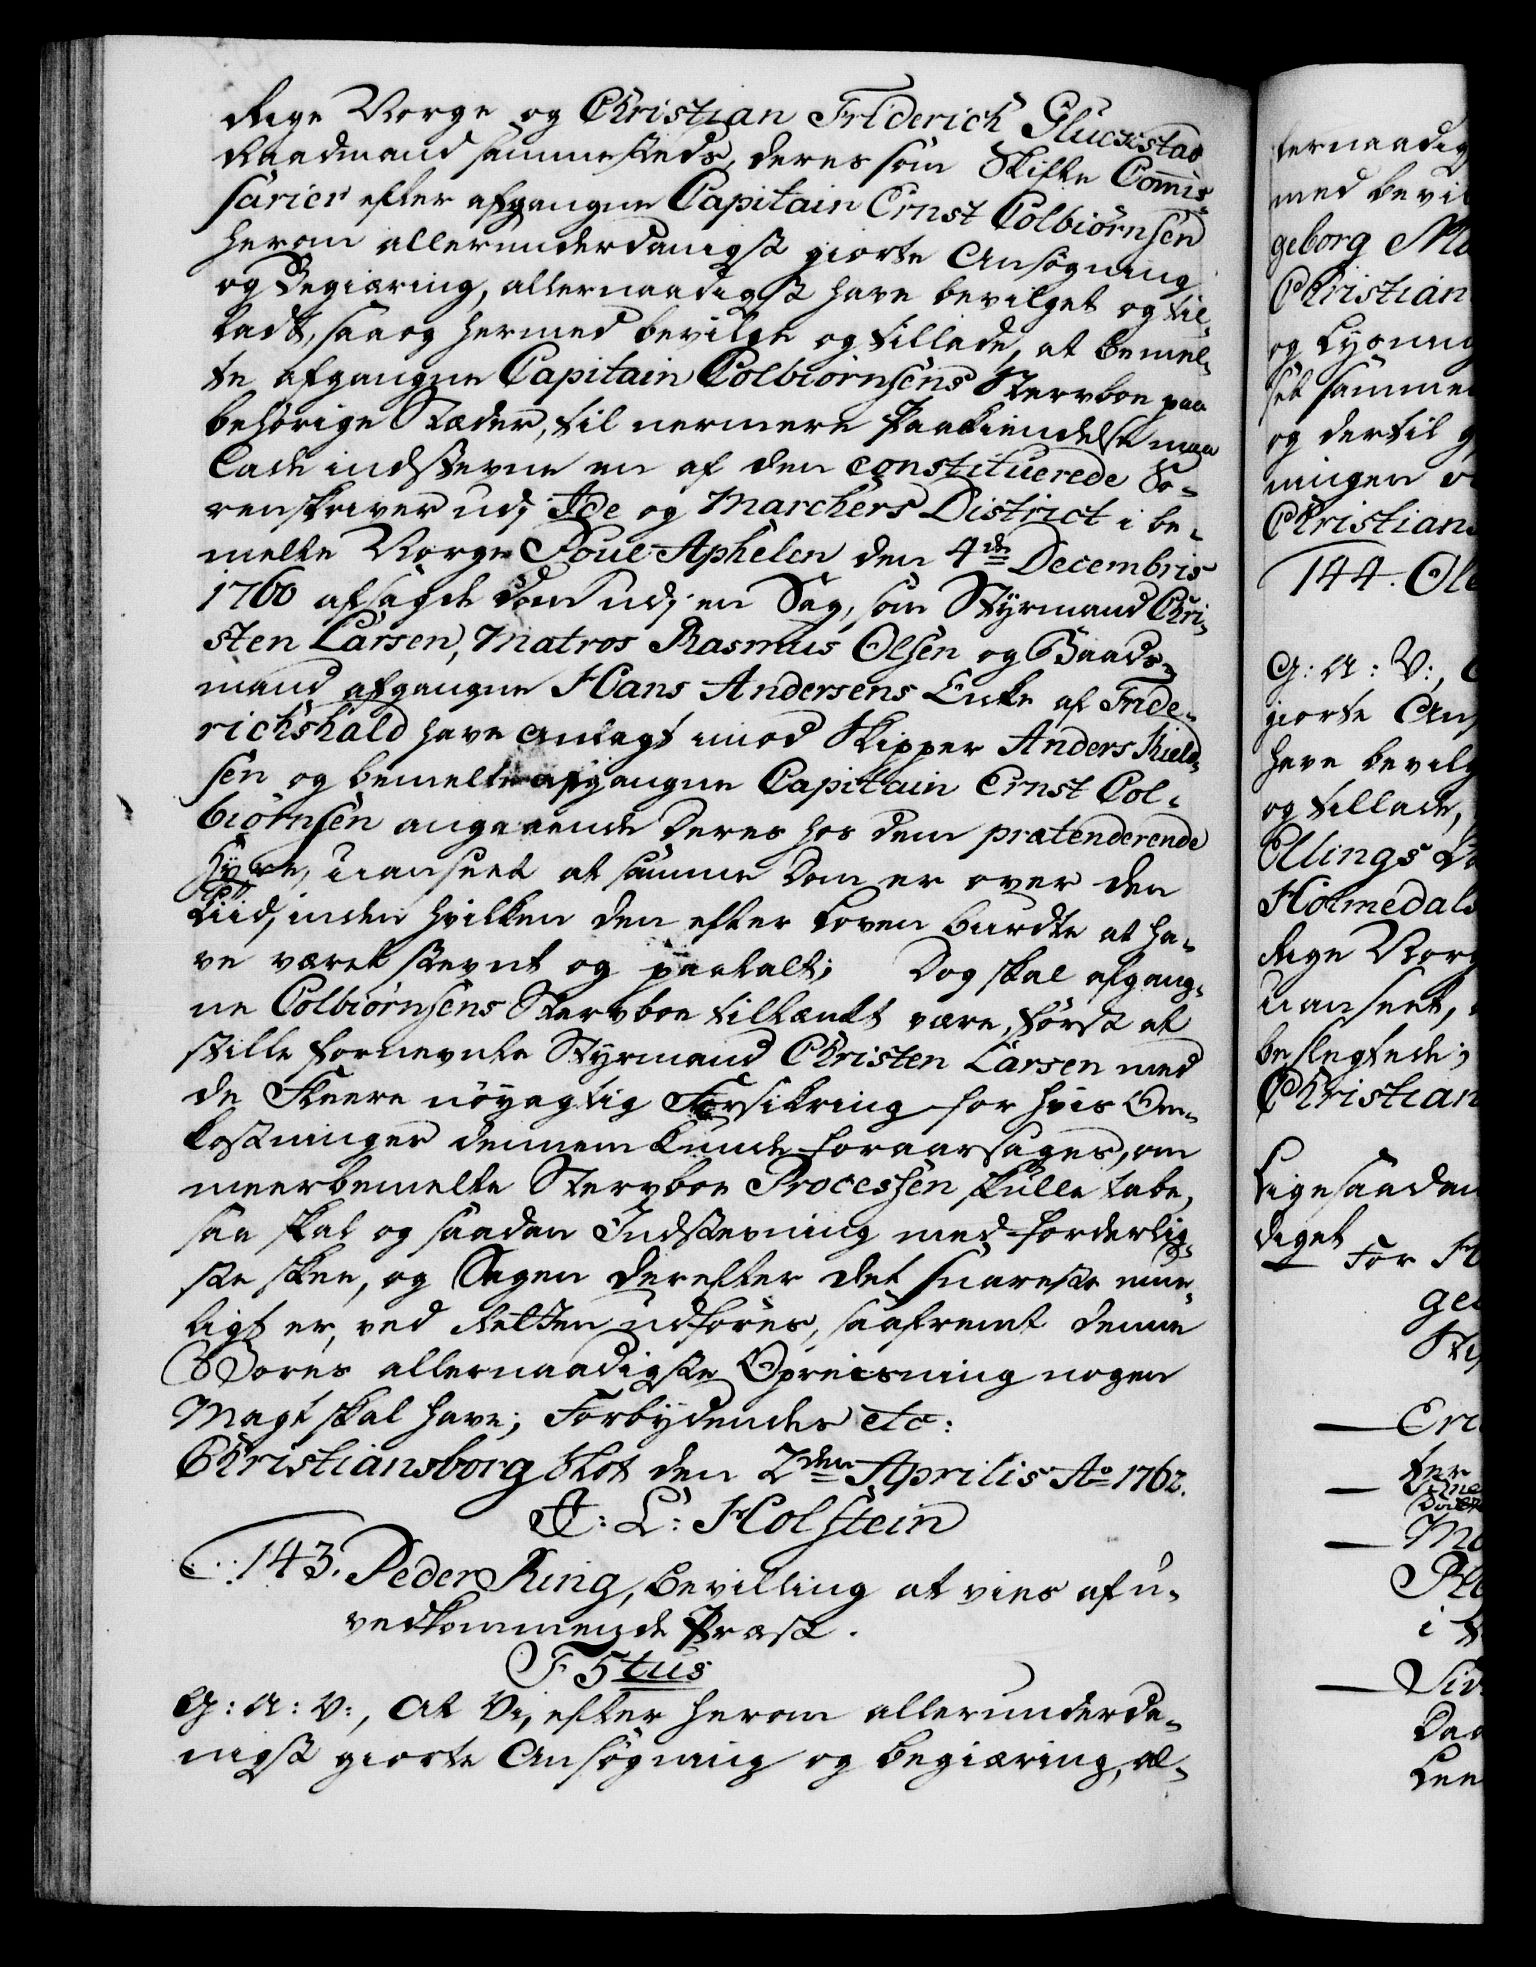 Rige Norge og Christian Friderich Gluckstad
Raadmand sammesteds, deres som Skifte Commis-
sarier efter afgangne Capitain Ernst Colbiørnsen
herom allerunderdanigst giorte Ansøgning
og Begiæring, allernaadigst have bevilget og til-
ladt, saa og hermed bevilge og tillade, at bemel-
te afgangne Capitain Colbiørnsens Stervboe paa
behørige Stæder, til nermere Paakiendelse maa
lade indstevne en af den constituerede So-
renskriver udj Ide og Marchers District i be-
melte Norge Poul Aphelen den 4de Decembris
1760 afsagde Dom udj en Sag, som Styrmand Chri-
sten Larsen, Matros Rasmus Olsen og Baads-
mand afgangne Hans Andersens Enke af Fride-
richshald have anlagt imod Skipper Anders Kield-
sen og bemelte afgangne Capitain Ernst Col-
biørnsen angaaende deres hos dem prætenderende
Hyre, uanseet at samme Dom er over den
Tiid, inden hvilken den efter Loven burdte at ha-
ve været stevnt og paatalt; Dog skal afgang-
ne Colbiørnsens Stervboe tiltænkt være, først at
stille fornevnte Styrmand Christen Larsen med
de Fleere nøyagtig Forsikring for hvis Om-
kostninger dennem kunde foraarsages, om
meerbemelte Stervboe Processen skulle tabe,
saa skal og saadan Indstevning med forderlig-
ste skee, og Sagen derefter det snareste mue-
ligt er, ved Retten udføres, saafremt denne
Vores allernaadigste Opreisning nogen
Magt skal have; Forbydendes etc:
Christiansborg Slot den 2den Aprilis Ao 1762.
J: L: Holstein
143. Peder Ring, Bevilling at vies af u-
vedkommende Præst.
F 5tus
G: A: V:, At Vi, efter herom allerunderda-
nigst giorte Ansøgning og begiæring, al-
lernaadig
med bevil
geborg Ma
Christian
og Lysning
set samme
og dertil
ningen
Christians
144. Ole
G: A: V:,
giorte Ans
have bevilg
og tillade,
Ellings
Holmedals
Rige Norg
uanseet,
beslegtede;
Christian
Ligesaadan
diget
For
ge
— Eri
—
— Ma
i
— Siv
Daa